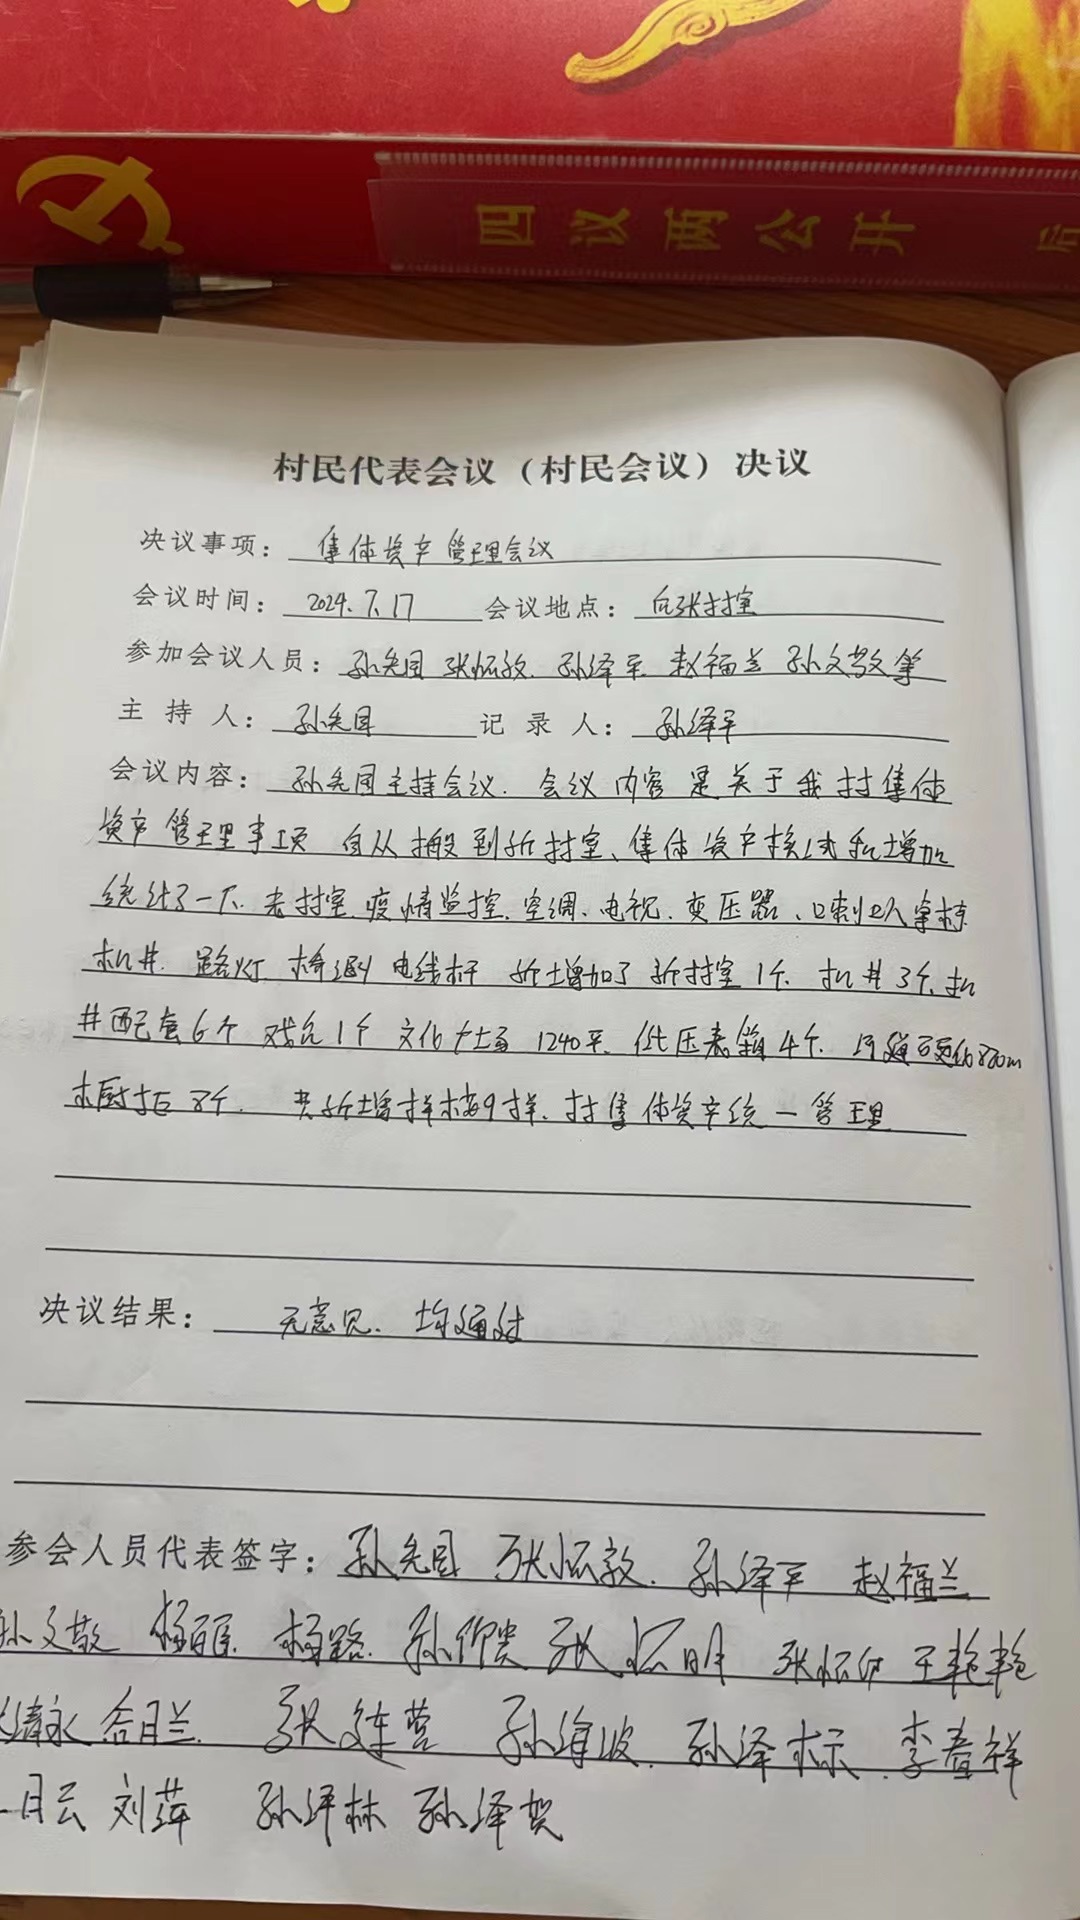 四议两公开
村民代表会议（村民会议）决议
决议事项：集体资产管理会议
会议时间：2024.7.17 会议地点：后张村室
参加会议人员：孙先国 张怀敦. 孙泽平 赵福兰 孙文敬等
主持人：孙先国 记录人：孙泽平
会议内容：孙先国主持会议. 会议内容是关于我村集体
资产管理事项 自从搬到新村室、集体资产核减和增加
统计了一下. 老村室. 疫情监控. 空调、电视. 变压器、
机井. 路灯 桥涵 电线杆 新增加了新村室1个. 机井3个. 机
井配套6个 戏台1个 文化广场1240平. 低压表箱4个.
木厨柜8个. 共新增样 9样. 村集体资产统一管理
决议结果：无意见. 均通过
参会人员代表签字：孙先国 张怀敦. 孙泽平 赵福兰
孙文敬 杨路. 张怀明 王艳艳
张连营 孙泽标. 李春祥
月云 刘萍 孙泽林 孙泽贺